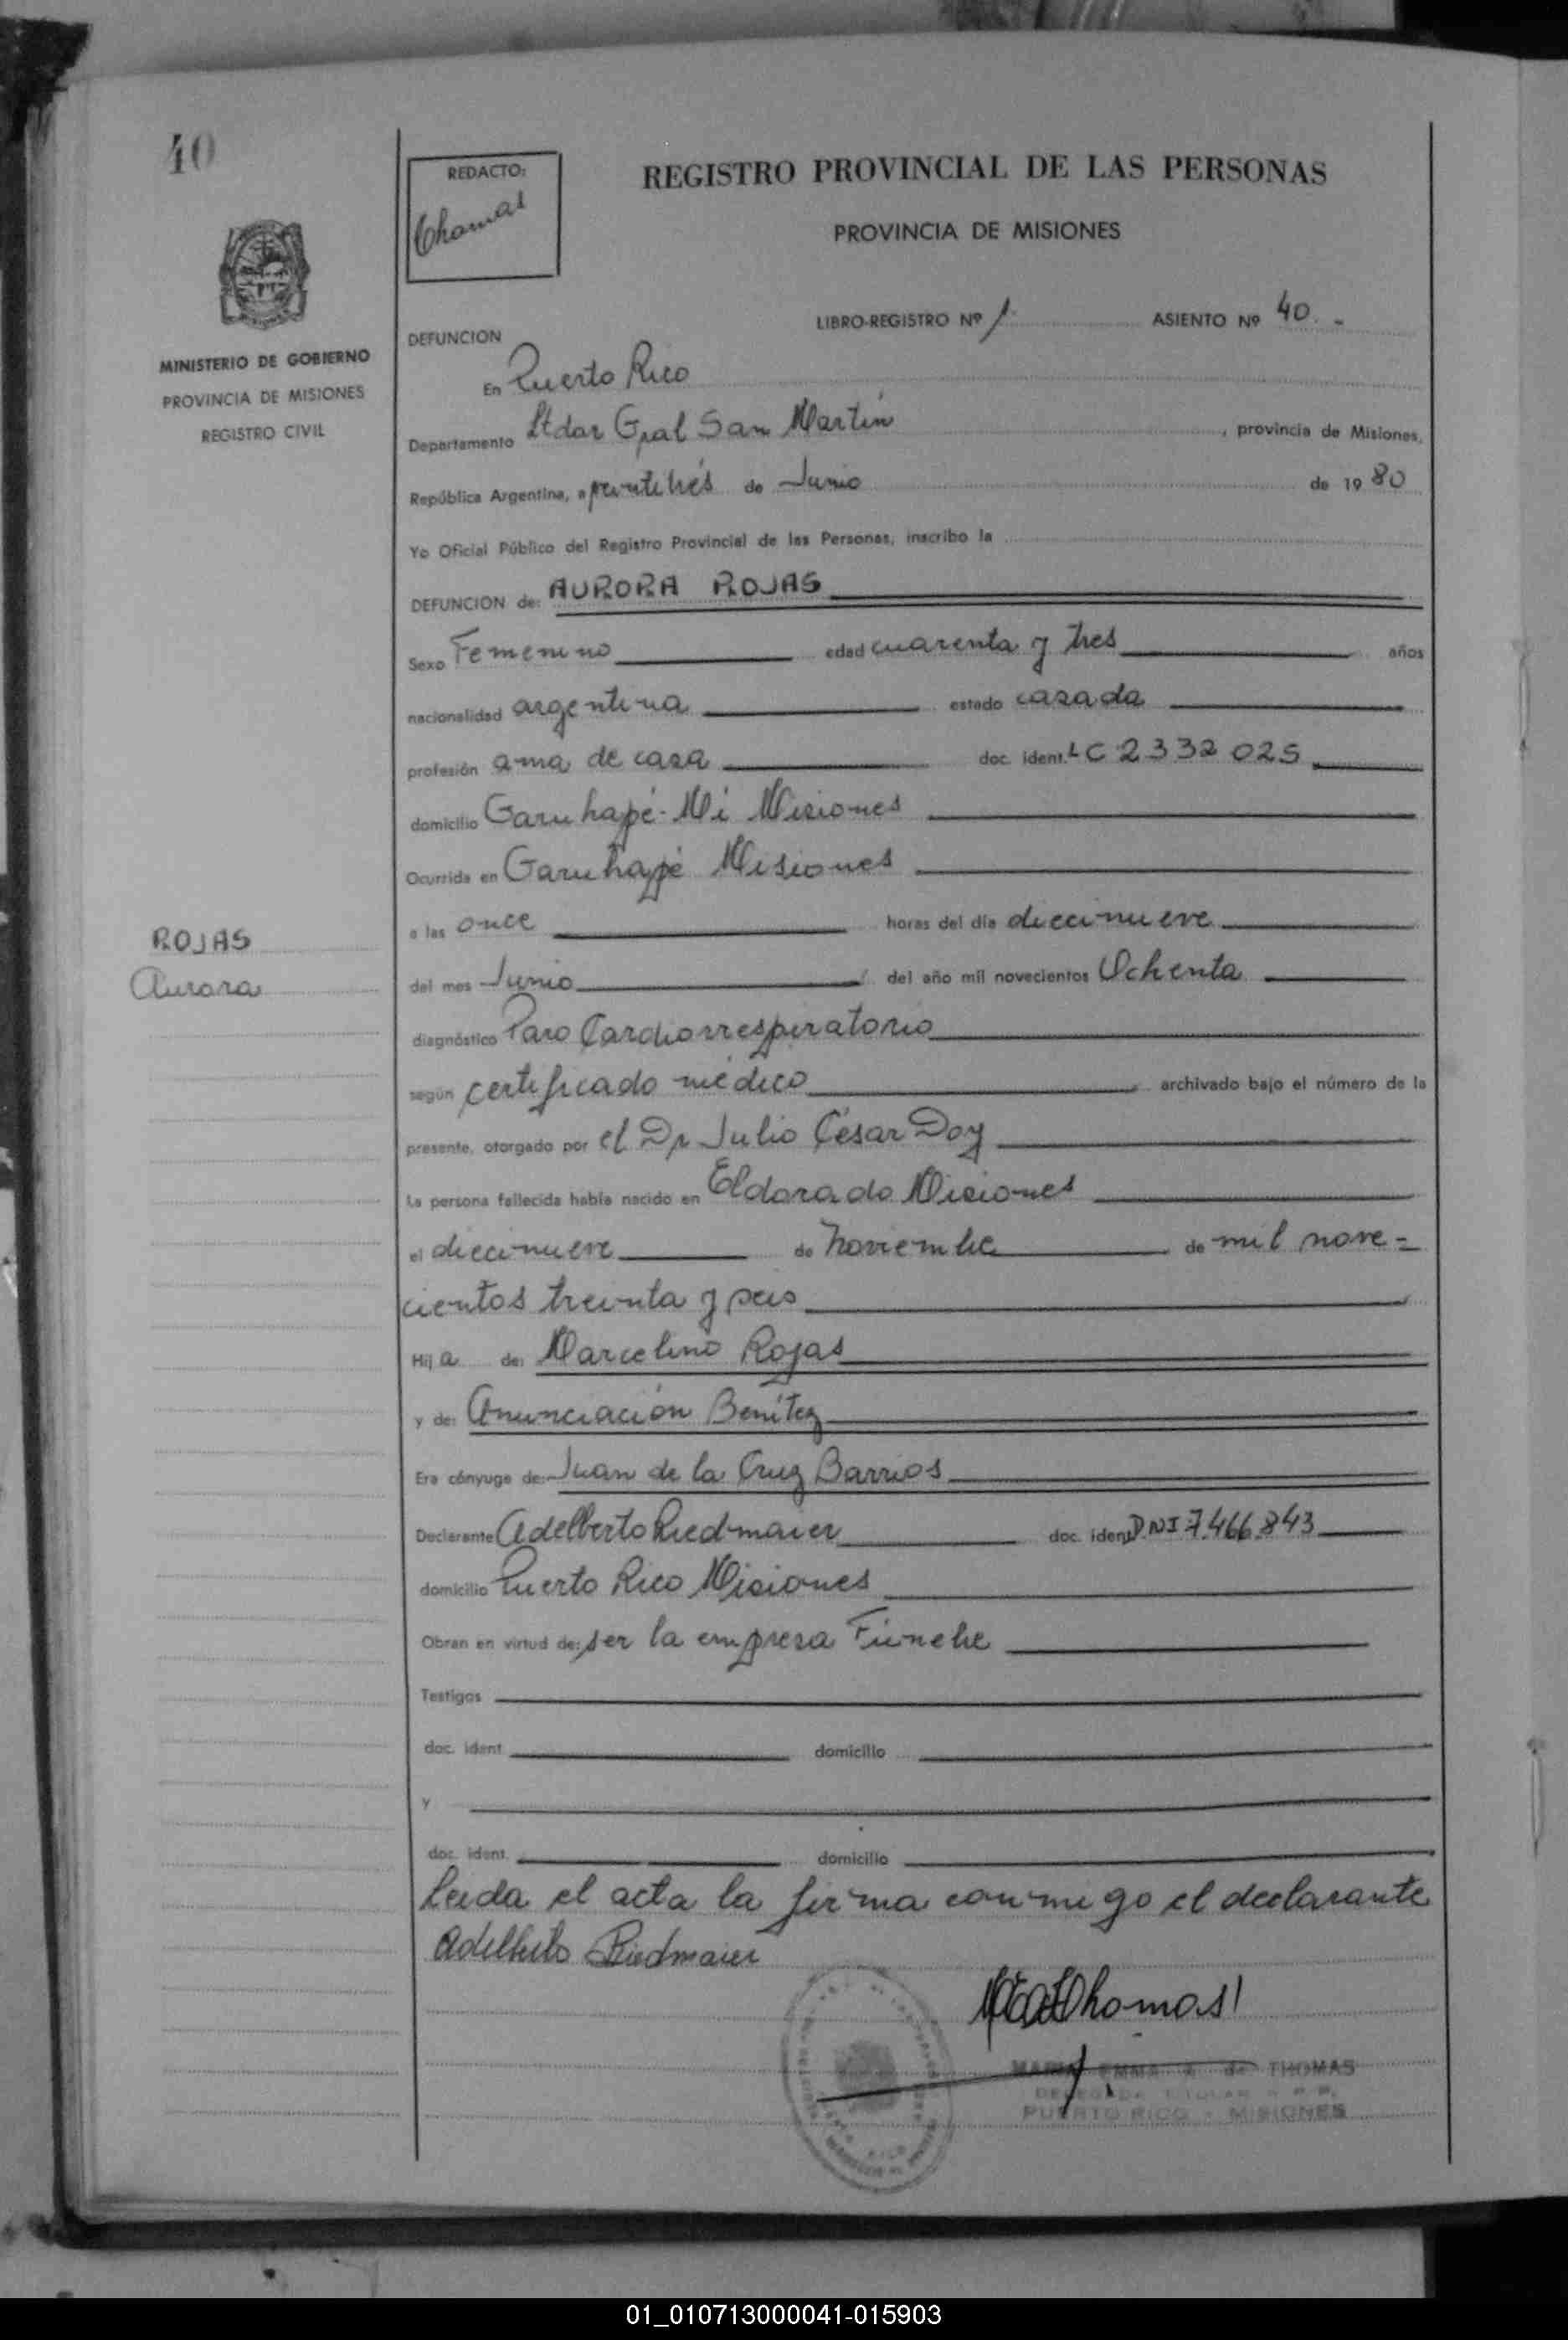 40
REDACTO:
Thomas
REGISTRO PROVINCIAL DE LAS PERSONAS
PROVINCIA DE MISIONES
LIBRO-REGISTRO Nº 1 ASIENTO Nº 40.-
MINISTERIO DE GOBIERNO
PROVINCIA DE MISIONES
REGISTRO CIVIL
DEFUNCION
En Puerto Rico
Departamento Ltdor Gral San Martín, provincia de Misiones,
República Argentina, a veintitrés de Junio de 1980
Yo Oficial Público del Registro Provincial de las Personas, inscribo la
DEFUNCION de: AURORA ROJAS
Sexo Femenino edad cuarenta y tres años
nacionalidad argentina estado casada
profesión ama de casa doc. ident. LC 2332025
domicilio Garuhapé-Mi Misiones
Ocurrida en Garuhapé Misiones
a las once horas del día diecinueve
ROJAS
Aurora
del mes Junio del año mil novecientos Ochenta
diagnóstico Paro Cardiorrespiratorio
según certificado médico archivado bajo el número de la
presente, otorgado por el Dr Julio César Doy
La persona fallecida había nacido en Eldorado Misiones
el diecinueve de Noviembre de mil nove=
cientos treinta y seis
Hija de: Marcelino Rojas
y de: Anunciación Benítez
Era cónyuge de: Juan de la Cruz Barrios
Declarante Adelberto Riedmaier doc. ident DNI 7.466.843
domicilio Puerto Rico Misiones
Obran en virtud de: ser la empresa Fúnebre
Testigos
doc. ident. domicilio
y
doc. ident. domicilio
Leída el acta la firma conmigo el declarante
Adelberto Riedmaier
Thomas
MARIA EMMA de THOMAS
PUERTO RICO - MISIONES
01_010713000041-015903